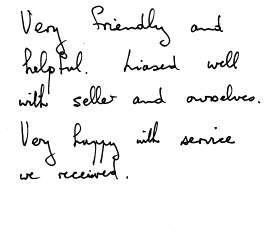 Very friendly and
helpful. Liased well
with seller and ourselves.
Very happy with service
we received.